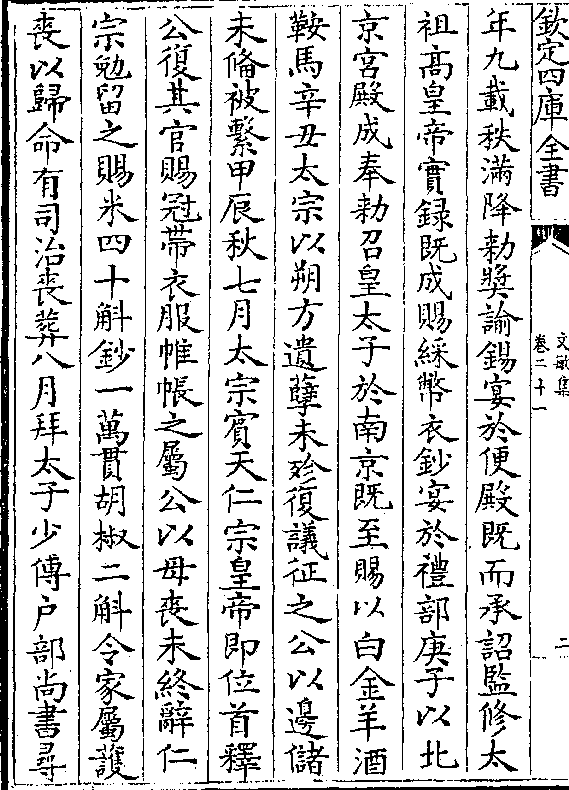 欽定四庫全書
文敏集
卷二十一
二
年九載秩滿降勅奬諭錫宴於便殿既而承詔監修太
祖髙皇帝實録既成賜綵幣衣鈔宴於禮部庚子以北
京宮殿成奉勅召皇太子於南京既至賜以白金羊酒
鞍馬辛丑太宗以朔方遺孽未殄復議征之公以邊儲
未備被繫甲辰秋七月太宗賓天仁宗皇帝即位首釋
公復其官賜冠帶衣服帷帳之屬公以母喪未終辭仁
宗勉留之賜米四十斛鈔一萬貫胡椒二斛令家屬護
喪以歸命有司治喪葬八月拜太子少傅户部尚書尋